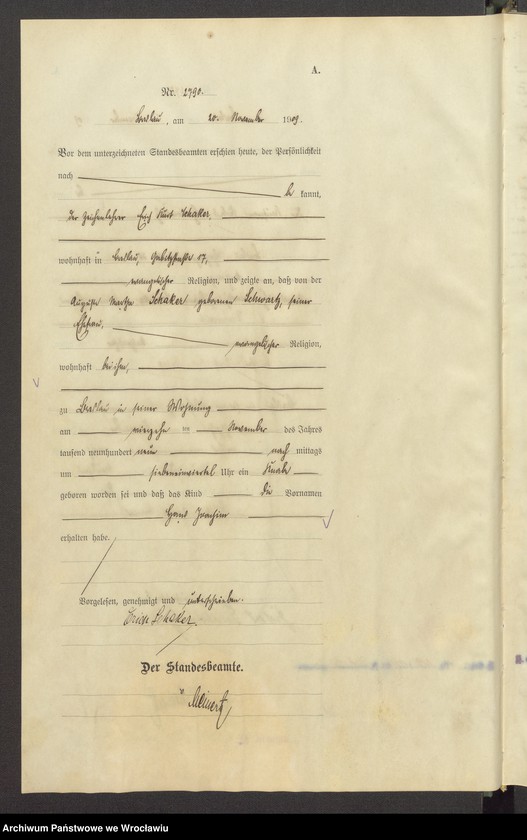 A.
Nr. 2790.
Breslau, am 20. November 1909.
Vor dem unterzeichneten Standesbeamten erschien heute, der Persönlichkeit
nach
be kannt,
der Zeichenlehrer Erich Kurt Schaker,
wohnhaft in Breslau, Gabitzstraße
evangelischer Religion, und zeigte an, daß von der
Auguste Martha Schaker geborenen Schwartz, seiner
Ehefrau,
evangelischer Religion,
wohnhaft bei ihm,
zu Breslau in seiner Wohnung
am vierzehn ten November des Jahres
tausend neunhundert neun nach mittags
um siebeneinviertel Uhr ein Knabe
geboren worden sei und daß das Kind die Vornamen
Hans Joachim
erhalten habe.
Vorgelesen, genehmigt und unterschrieben.
Erich Schaker.
Der Standesbeamte.
Archiwum Państwowe we Wrocławiu